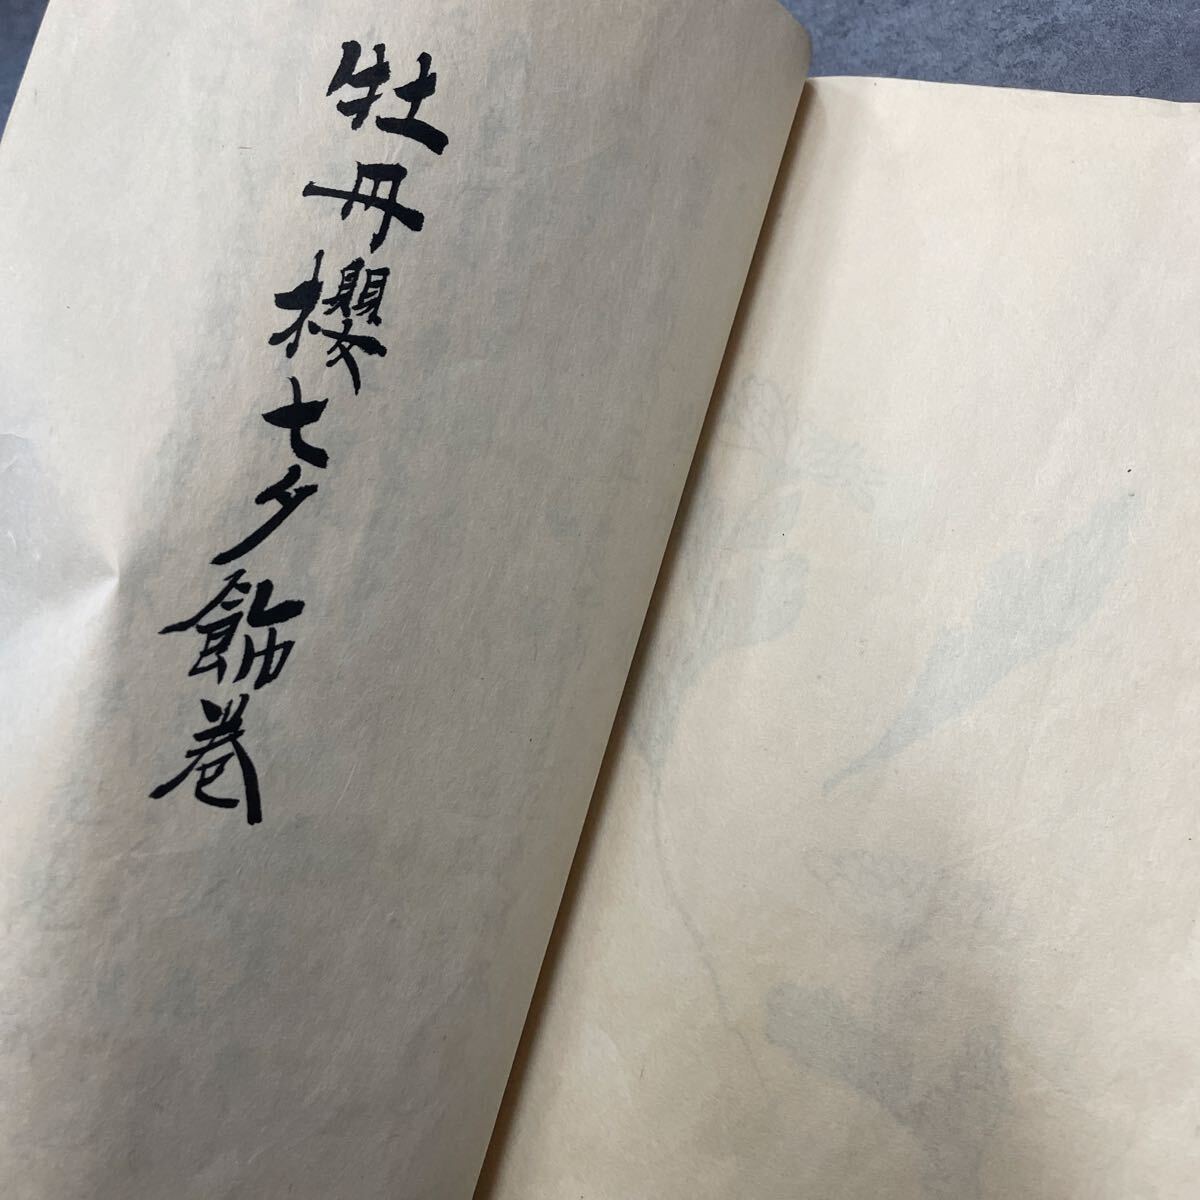 牡丹櫻七夕飾巻